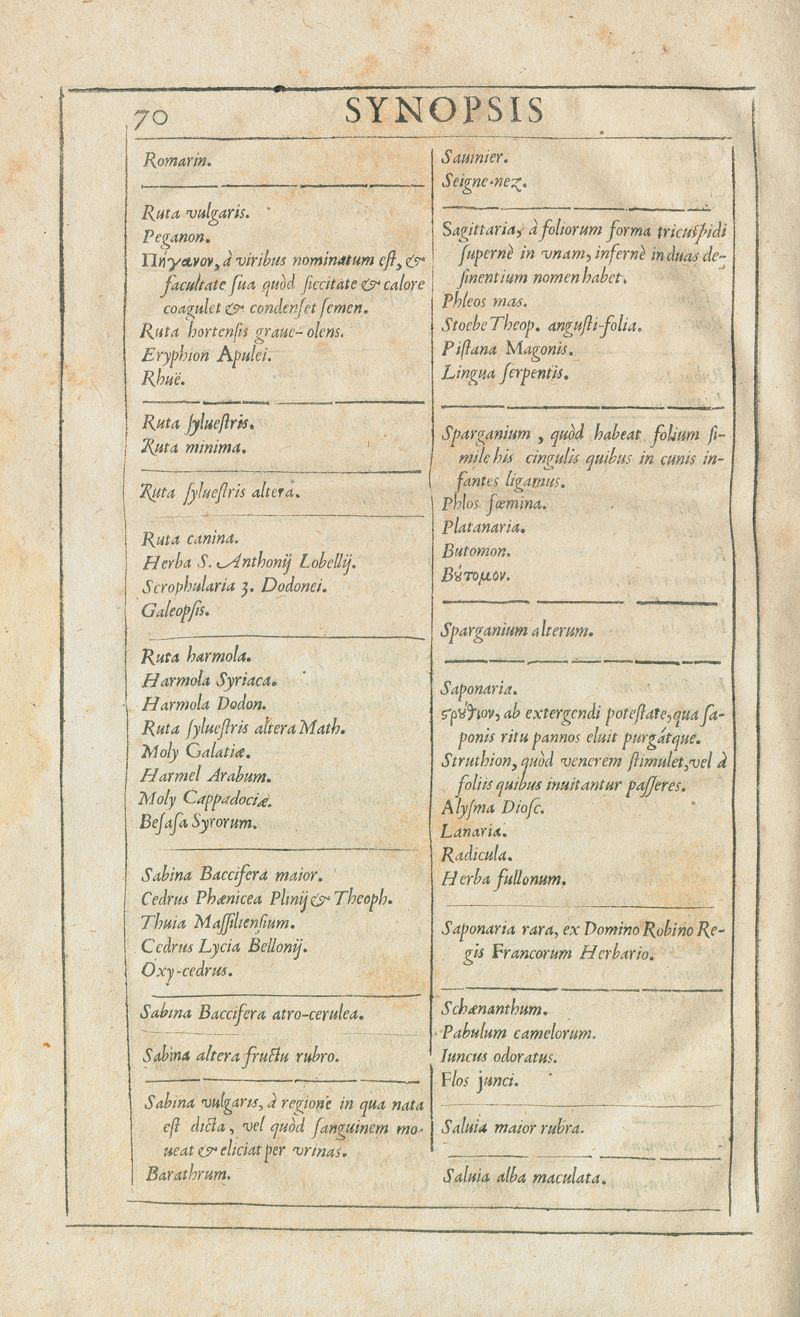 70
SYNOPSIS
Romarin.
Ruta vulgaris.
Peganon.
Πήγανον, à viribus nominatum eſt, &
facultate ſua quòd ſiccitate & calore
coagulet & condenſet ſemen.
Ruta hortenſis graue-olens.
Eryphion Apulei.
Rhuë.
Ruta ſylueſtris.
Ruta minima.
Ruta ſylueſtris altera.
Ruta canina.
Herba S. Anthonij Lobellij.
Scrophularia 3. Dodonei.
Galeopſis.
Ruta harmola.
Harmola Syriaca.
Harmola Dodon.
Ruta ſylueſtris altera Math.
Moly Galatiæ.
Harmel Arabum.
Moly Cappadociæ.
Beſaſa Syrorum.
Sabina Baccifera maior.
Cedrus Phœnicea Plinij & Theoph.
Thuia Maſſilienſium.
Cedrus Lycia Bellonij.
Oxy-cedrus.
Sabina Baccifera atro-cerulea.
Sabina altera fructu rubro.
Sabina vulgaris, à regione in qua nata
eſt dicta, vel quòd ſanguinem mo-
ueat & eliciat per vrinas.
Barathrum.
Sauinier.
Seigne-nez.
Sagittaria, à foliorum forma tricuſpidi
ſupernè in vnam, infernè in duas de-
ſinentium nomen habet.
Phleos mas.
Stoebe Theop. anguſti-folia.
Piſtana Magonis.
Lingua ſerpentis.
Sparganium, quòd habeat folium ſi-
mile his cingulis quibus in cunis in-
fantes ligamus.
Phlos fœmina.
Platanaria.
Butomon.
Βȣ́τομον.
Sparganium alterum.
Saponaria.
ϛρȣ́θιον, ab extergendi poteſtate, qua ſa-
ponis ritu pannos eluit purgátque.
Struthion, quòd venerem ſtimulet, vel à
foliis quibus inuitantur paſſeres.
Alyſma Dioſc.
Lanaria.
Radicula.
Herba fullonum.
Saponaria rara, ex Domino Robino Re-
gis Francorum Herbario.
Schœnanthum.
Pabulum camelorum.
Iuncus odoratus.
Flos junci.
Saluia maior rubra.
Saluia alba maculata.